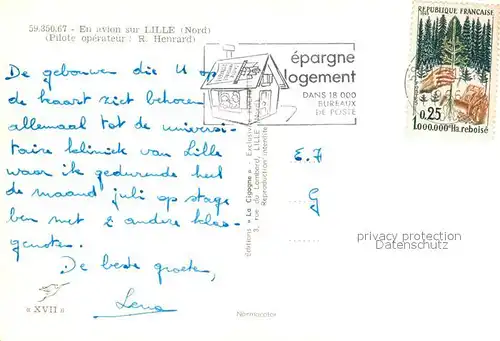 59.350.67 - En avion sur LILLE (Nord)
(Pilote opérateur : R. Henrard)
De gebouwen die U op
de kaart ziet behoren
allemaal tot de universi-
taire kliniek van Lille
waar ik gedurende heel
de maand juli op stage
ben met 2 andere klas-
genoten.
De beste groeten,
Lena
« XVII »
épargne
logement
DANS 18 000
BUREAUX
DE POSTE
Editions « La Cigogne » - Exclusivité
3, rue du Lombard, LILLE
Reproduction interdite
Normacolor
RÉPUBLIQUE FRANÇAISE
0,25
1.000.000e Ha reboisé
E. F
G
privacy protection
Datenschutz